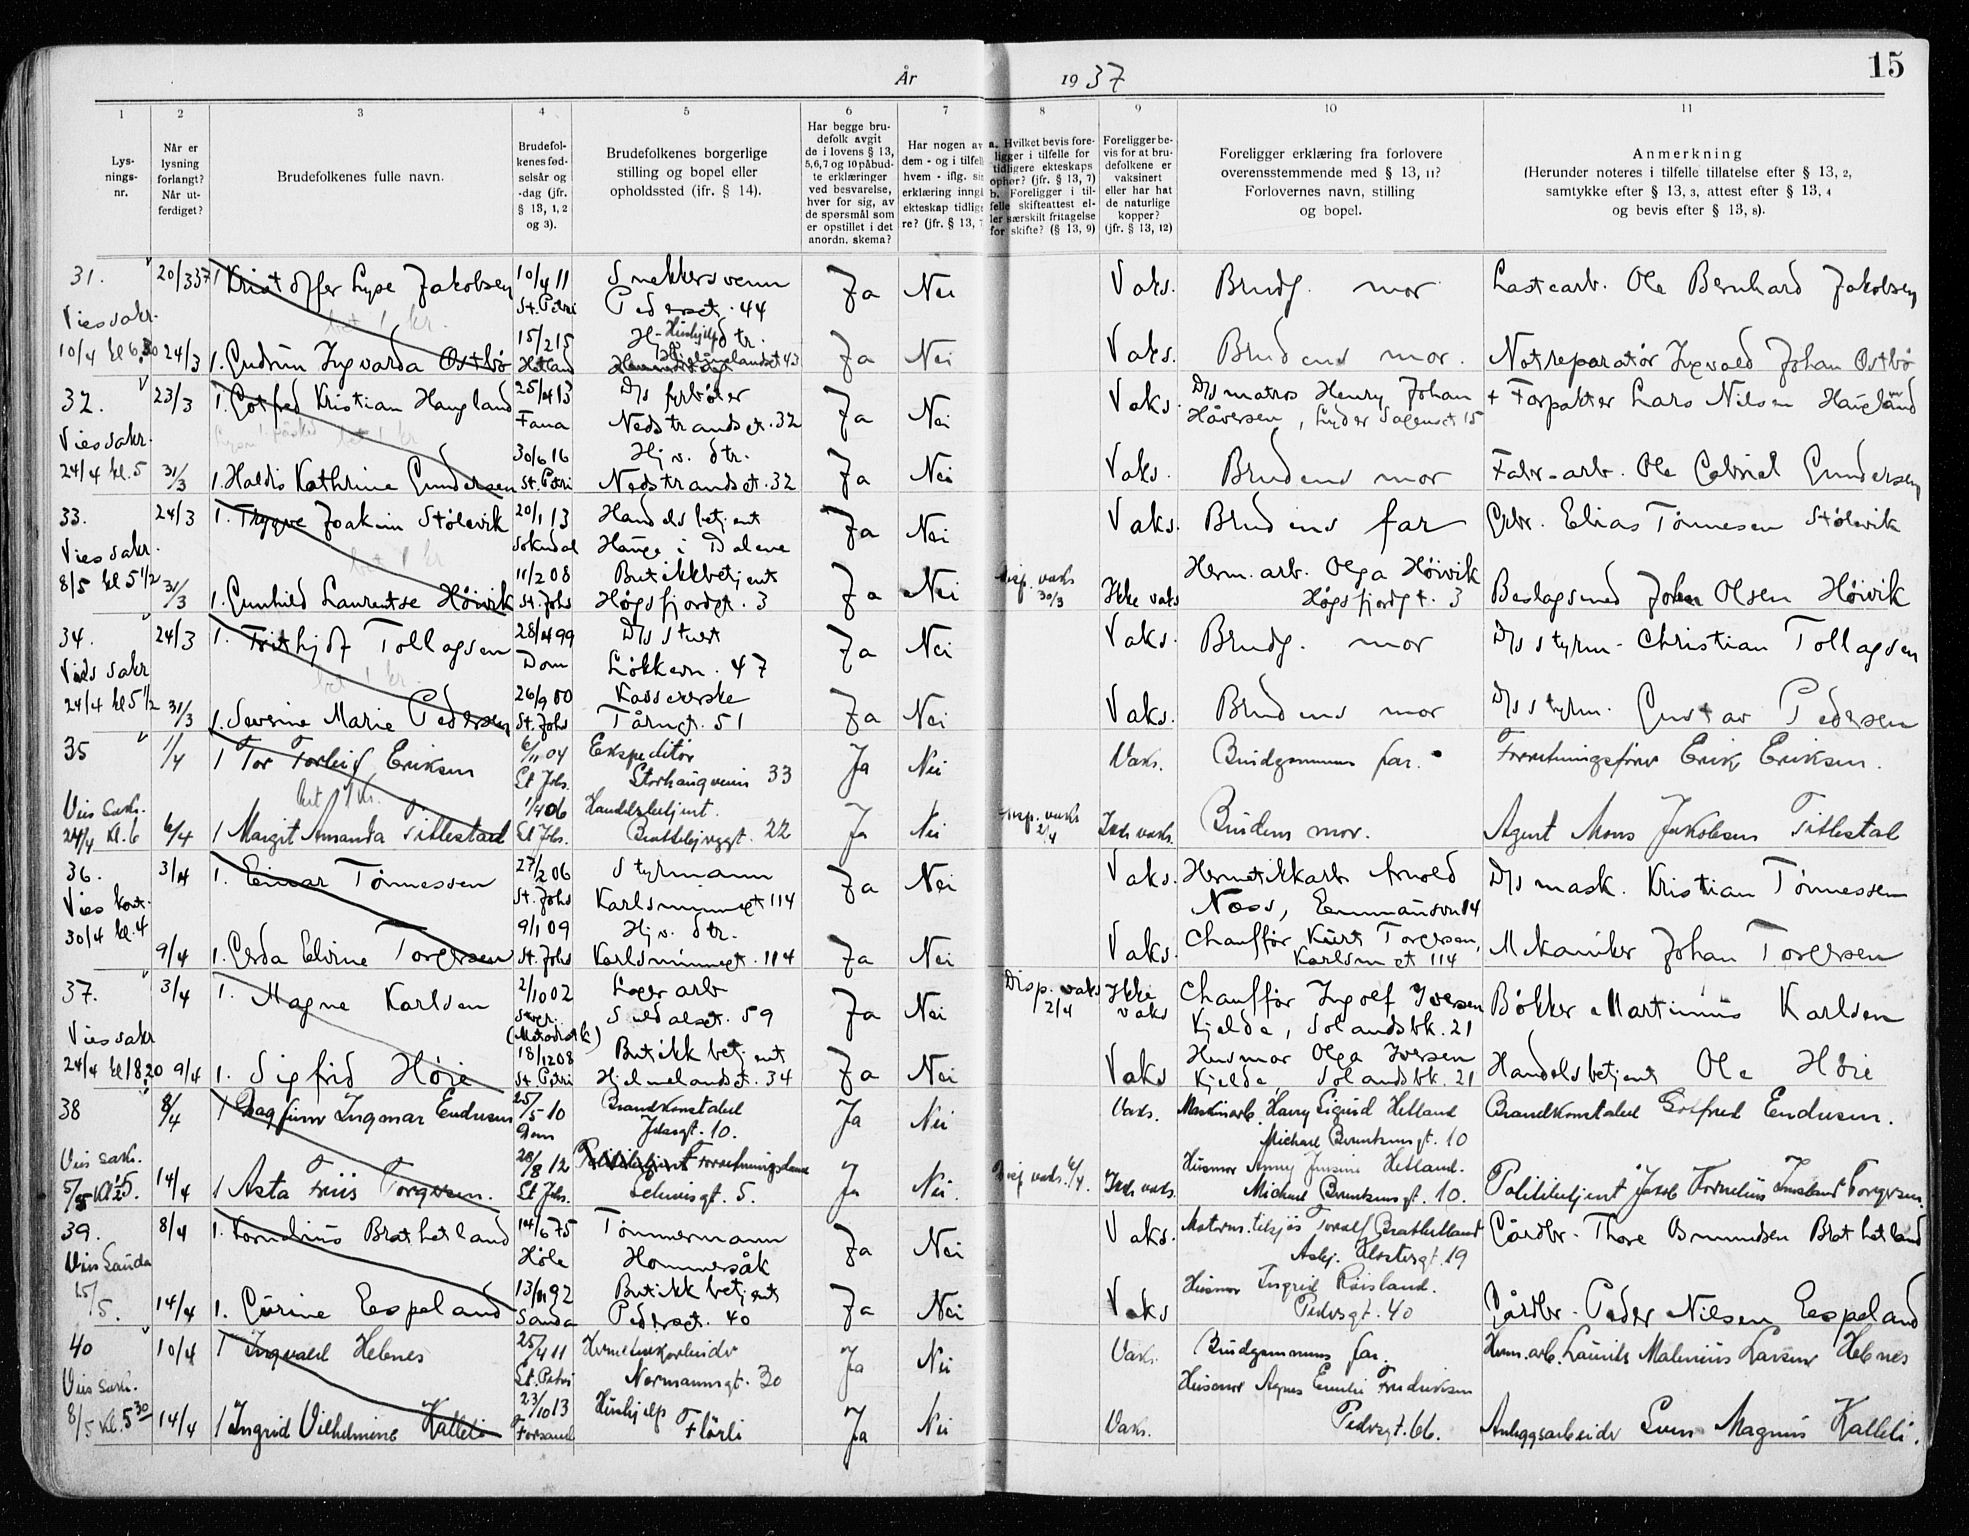 År 1937
15
1 2 3 4 5 6 7 8 9 10 11
Lys-
nings-
nr.
Når er
lysning
forlangt?
Når ut-
ferdiget?
Brudefolkenes fulle navn.
Brudefol-
kenes fød-
selsår og
-dag (jfr.
§ 13, 1, 2
og 3).
Brudefolkenes borgerlige
stilling og bopel eller
opholdssted (jfr. § 14).
Har begge bru-
defolk avgit
de i lovens § 13,
5,6,7 og 10 påbud-
te erklæringer
ved besvarelse,
hver for sig, av
de spørsmål som
er opstillet i det
anordn. skema?
Har nogen av
dem - og i tilfelle
hvem - iflg.
erklæring inngå
ekteskap tidlige
re? (jfr. § 13, 7
a. Hvilket bevis fore-
ligger i tilfelle for
tidligere ekteskaps
ophør? (jfr. § 13, 7)
b. Foreligger i til-
felle skifteattest el-
ler særskilt fritagelse
for skifte? (§ 13, 9)
Foreligger be-
vis for at bru-
defolkene er
vaksinert
eller har hat
de naturlige
kopper?
(jfr. § 13, 12)
Foreligger erklæring fra forlovere
overensstemmende med § 13, 11?
Forlovernes navn, stilling
og bopel.
Anmerkning
(Herunder noteres i tilfelle tillatelse efter § 13, 2,
samtykke efter § 13, 3, attest efter § 13, 4
og bevis efter § 13, 8).
31. 20/3 37 1 Kristoffer Lyse Jakobsen 10/4 11 Snekkersvenn Ja Nei Vaks. Brudg. mor Lastearb. Ole Bernhard Jakobsen
Vies sakr. bet 1 kr. St. Petri Pedersgt. 44
10/4 kl 6.30 24/3 1. Gudrun Ingvarda Østbø 15/2 15 Hushjelp Ja Nei Vaks. Brudens mor. Notreparatør Ingvald Johan Østbø
Hetland Hjelmelandsgt 43
32. 23/3 1. Gotfred Kristian Haugland 25/4 13 D/s fyrbøter Ja Nei Vaks. D/s matros Henry Johan + Forpakter Lars Nilsen Haugland
Vies sakr. bet 1 kr Fana Nedstrandsgt. 32 Håversen, Lyder Sagensgt 15
24/4 kl. 5 31/3 1. Haldis Kathrine Gundersen 30/6 16 Hjv. dtr. Ja Nei Vaks. Brudens mor Fabr-arb. Ole Gabriel Gundersen
St. Petri Nedstrandsgt. 32
33. 24/3 1. Trygve Joakim Stølevik 20/1 13 Handelsbetjent Ja Nei Vaks. Brudens far Gbr. Elias Tønnesen Stølevik
Vies sakr. bet 1 kr Sokndal Hauge i Dalene
8/5 kl 5 1/2 31/3 1. Gunhild Lauentse Høivik 11/2 08 Butikkbetjent Ja Nei Disp. vaks 30/3 Ikke vaks Herm. arb. Olga Høivik Beslagsmed John Olsen Høivik
St. Johs Høgsfjordgt. 3 Høgsfjordgt. 3
34. 24/3 1. Frithjof Tollagsen 28/4 99 D/s stuert Ja Nei Vaks. Brudg. mor D/s styrm. Christian Tollagsen
Vies sakr bet 1 kr. Dom Løkkevn. 47
24/4 kl 5 1/2 31/3 1. Severine Marie Pedersen 26/9 00 Kassererske Ja Nei Vaks. Brudens mor D/s styrm. Gustav Pedersen
St. Johs Tårngt. 51
35 1/4 1 Tor Torleif Eriksen 6/11 04 Ekspeditør Ja Nei Vaks. Brudgommens far. Forretningsfører Erik Eriksen.
bet 1 kr. St Johs. Storhaugveien 33
Vies sakr. 24/4 kl. 6 6/4 1 Margit Amanda Tittestad 1/4 06 Handelsbetjent. Ja Nei Disp. vaks 2/4 Ikke vaks. Brudens mor. Agent Mons Jakobsen Tittestad
St Johs. 22
36. 3/4 1. Einar Tønnessen 27/2 06 Styrmann Ja Nei Vaks. Hermetikkarb Arnold D/s mask. Kristian Tønnessen
Vies kont. St. Johs Karlsminnegt 114 Næss, Emmausvn 14
30/4 kl. 4 9/4 1. Gerda Elvine Torgersen 9/1 09 Hjv. dtr. Ja Nei Vaks. Chauffør Kurt Torgersen, Mekaniker Johan Torgersen
St. Johs Karlsminnegt. 114 Karlsm gt 114
37. 3/4 1. Magne Karlsen 2/10 02 Lagerarb Ja Nei Disp. vaks 2/4 Ikke vaks Chauffør Ingolf Iversen Bøkker Martinius Karlsen
Vies sakr Stvgr. (Metodistk) Suldalsgt. 59 Kjelde, Solandsbk. 21
24/4 kl 18.20 9/4 1. Sigfrid Høie 18/12 08 Butikkbetjent Ja Nei Vaks Husmor Olga Iversen Handelsbetjent Ole Høie
St Petri Hjelmelandsgt. 34 Kjelde, Solandsbk. 21
38 8/4 1 Dagfinn Ingmar Endresen 25/5 10 Brandkonstabel Ja Nei Vaks. Maskinarb. Harry Sigurd Hetland Brandkonstabel Gotfred Endresen.
Dom gt. 10. Michael Berentsensgt. 10
Vies sakr. 5/5 kl. 5. 14/4 1 Asta Friis Torgersen. 28/8 12 Forretningsdame Ja Nei. Disp vaks. 6/4. Ikke vaks. Husmor Anny Hetland. Politibetjent Jakob Kornelius Torgersen.
St Johs. gt. 5. Michael Berentsensgt. 10.
39. 8/4 1. Kornelius Brathetland 14/6 75 Tømmermann Ja Nei Vaks. Toralf Brathetland Gårdbr. Thore Osmundsen Brathetland
Vies Sauda Høle Hommersåk Klostergt. 19
15/5. 14/4 1. Gurine Espeland 13/11 92 Butikkbetjent Ja Nei Vaks Husmor Ingrid Røisland. Gårdbr. Peder Nilsen Espeland
Sauda Pedersgt. 40 Pedersgt. 40
40 10/4 1 Ingvald Helenes 25/4 11 Hermetikkarbeider Ja Nei Vaks. Brudgommens far. Herm. arb. Laurits Larsen
Vies sakr. St. Petri Normannsgt. 30 Husmor Agnes Emilie Fredriksen
8/5 kl. 5 30 14/4 1 Ingrid Vilhelmine Kalleli 23/10 13 Hushjelp Ja Nei Vaks. Pedersgt. 66. Anleggsarbeider Sven Magnus Kalleli.
Forsand Flørli